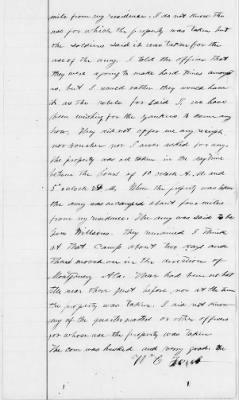 mile from my residence. I do not know the
use for which the property was taken but
the soldiers said it was taken for the
use of the army. I told the officer that
they were going to make hard times among
us, but I would rather they would have
it as the rebels for said I, we have
been wishing for the Yankees to come any
how. They did not offer me any receipt
nor voucher nor I never asked for any.
The property was all taken in the daytime
between the hours of 10 o'clock A.M. and
5 o'clock P.M. When the property was taken
the army was encamped about four miles
from my residence. The army was said to be
Gen Wilsons. They remained I think
at that Camp about two days and
then moved on in the direction of
Montgomery Ala. There had been no battle
near there just before, nor at the time
the property was taken. I did not know
any of the quartermasters or other officers
for whose use the property was taken
The corn was husked and very good. The
Wm C